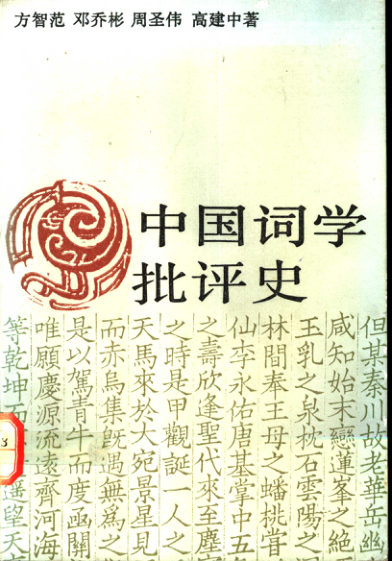 方智范 邓乔彬 周圣伟 高建中著
中国词学
批评史
但某秦川故老華岳幽
咸知始末戀蓮峯之絶
王乳之泉枕石雲陽之
林間奉王母之蟠桃嘗
仙李永佑唐基掌中五
之壽欣逢聖代來至塵
之時是甲觀誕一人之
天馬來於大宛景星見
而赤烏集旣遇無爲之
是以駕青牛而度函關
唯願慶源流遠齊河海
等乾坤而
遥望天